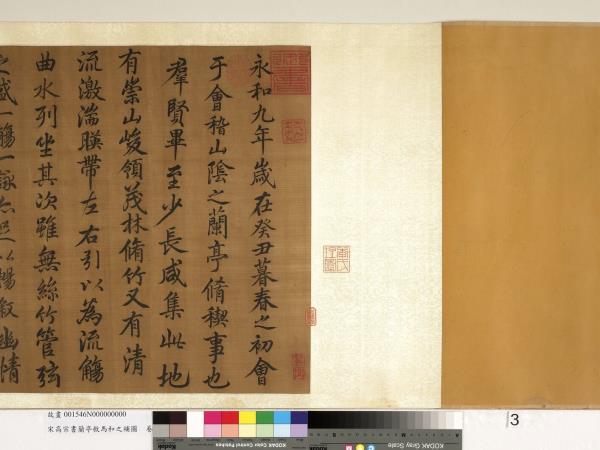 永和九年歲在癸丑暮春之初會
于會稽山陰之蘭亭脩禊事也
羣賢畢至少長咸集此地
有崇山峻領茂林脩竹又有清
流激湍暎帶左右引以為流觴
曲水列坐其次雖無絲竹管弦
之盛一觴一詠亦足以暢敘幽情
故畫 001546N000000000
宋高宗書蘭亭敘馬和之補圖 卷
KODAK
Color Control Patches
KODAK
3